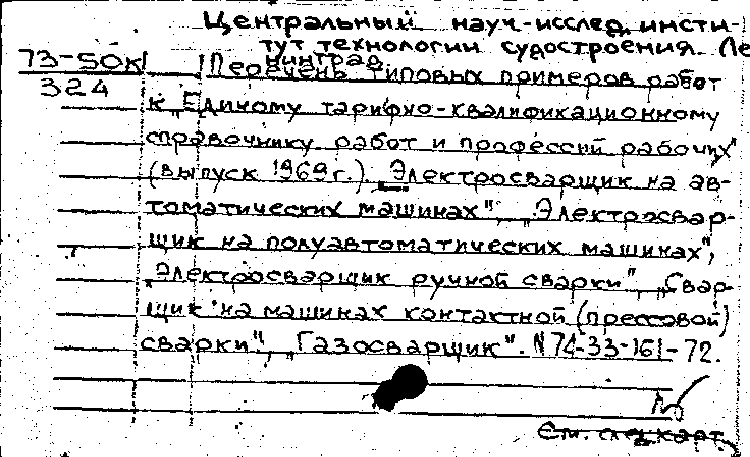 Центральный науч-исслед. инсти-
тут технологии судостроения. Ле
нинград.
73-50к
324
Перечень типовых примеров работ
к „Единому тарифно-квалификационному
справочнику работ и профессий рабочих"
(выпуск 1969 г.). „Электросварщик на ав-
томатических машинах", „Электросвар-
щик на полуавтоматических машинах",
„Электросварщик ручной сварки", „Свар-
щик на машинах контактной (прессовой)
сварки", „Газосварщик". N 74-33-161-72.
См. след карт.